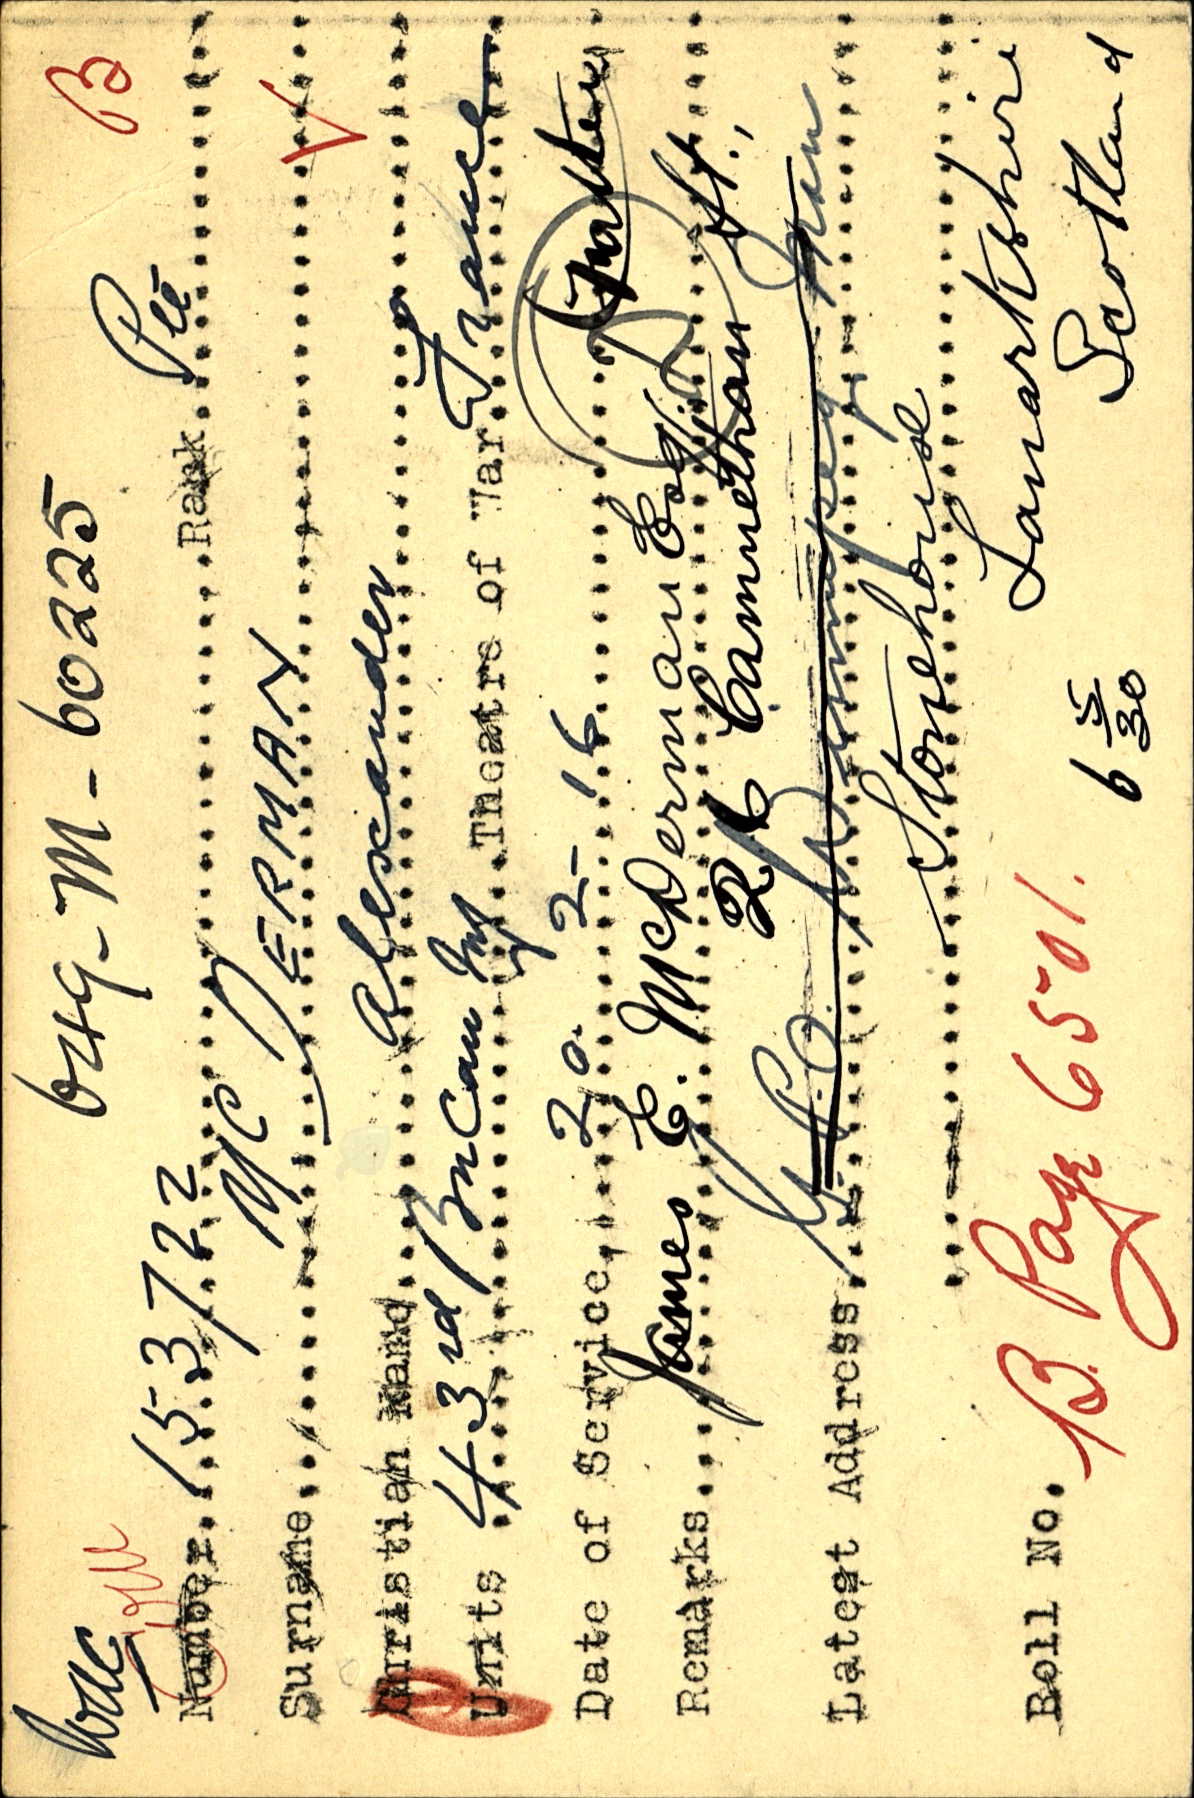 649-M-6025 B
Number. 153722 Rank. Pte
Surname. McDERMAN
Christian Name. Alexander
Units 43rd Bn Can Inf Theatre of War. France
Date of Service. 20. 2 - 16
Remarks. James E. McDerman Esq., (Father)
26 Cannethan St.,
Latest Address. G.P.O. Winnipeg Man
Stonehouse
Lanarkshire
Scotland
Roll No. B. Page 6501.
6 5/30